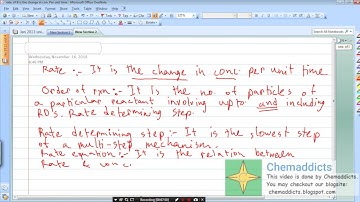 Wednesday, November 16, 2011
Rate :- It is the change in conc per unit time
Order of rxn :- It is the no. of particles of
a particular reactant involving upto and including
RDS. Rate determining step.
Rate determining step :- It is the slowest step
of a multi-step mechanism.
Rate equation :- It is the relation between
Rate & conc.
Chemaddicts
This video is done by Chemaddicts
You may checkout our blogsite:
chemaddicts.blogspot.com